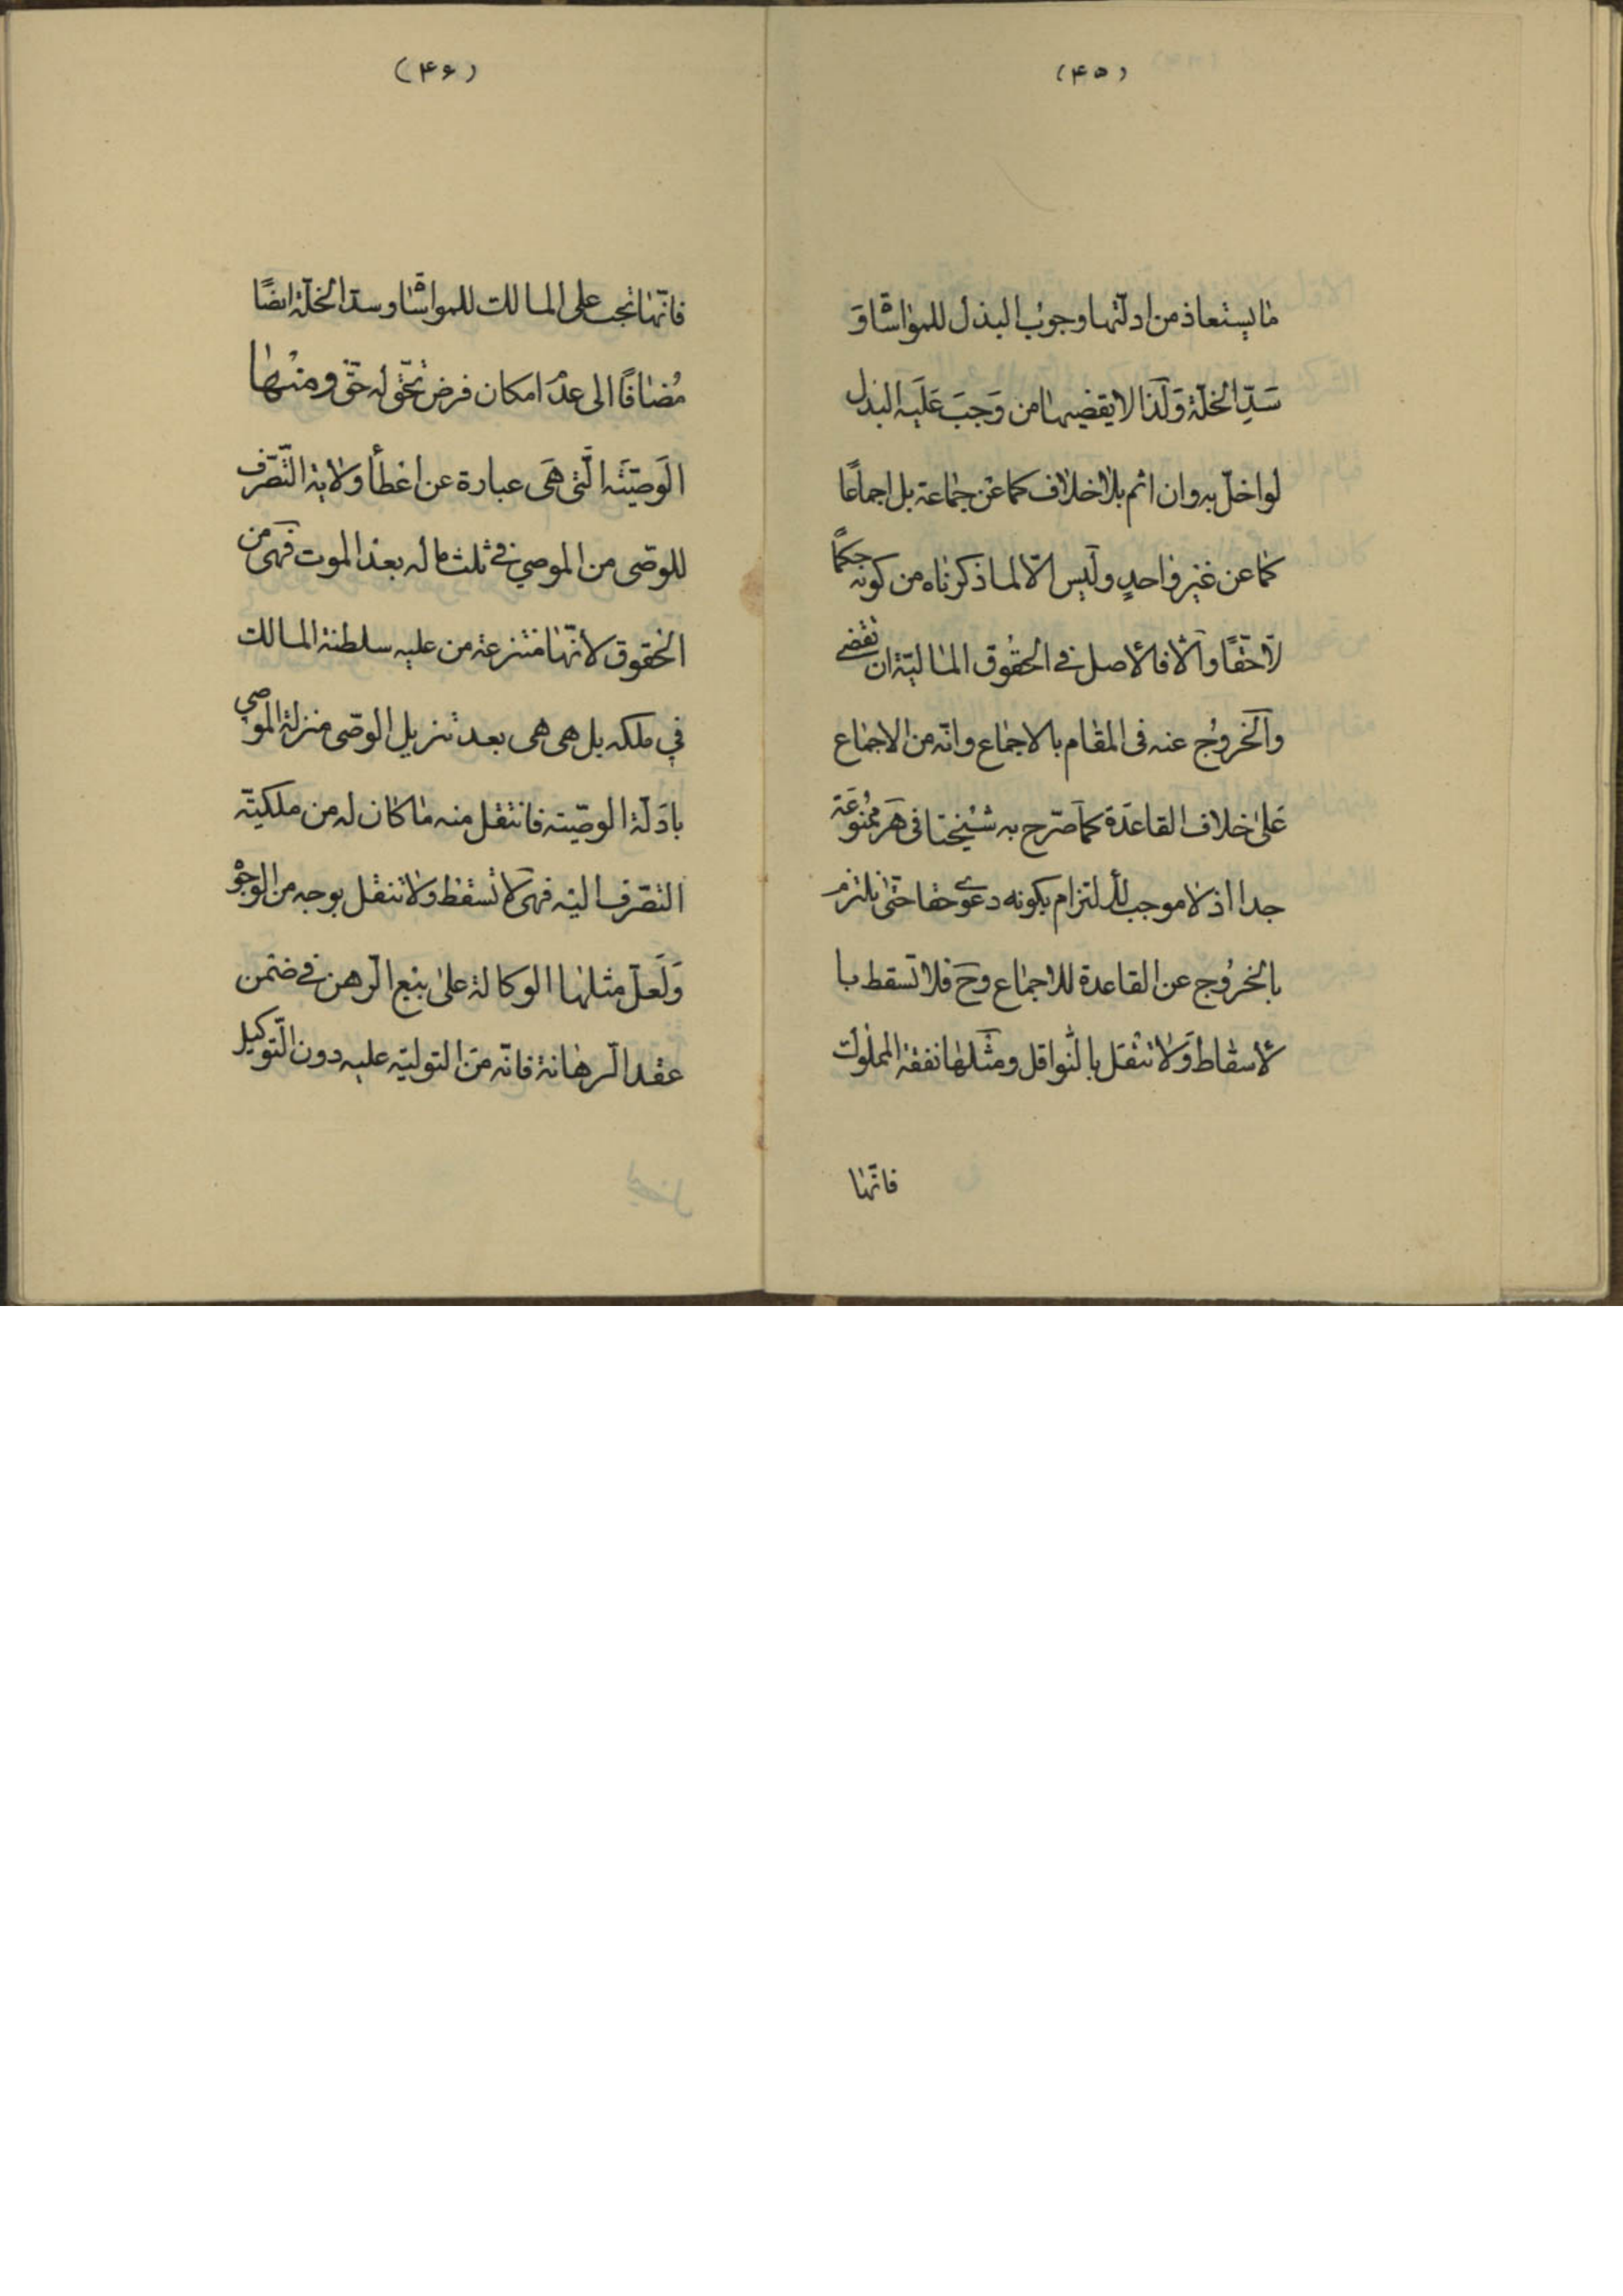 (۴۵)
ما یستعاذ من ادلتها وجوب البذل للمواشاة و
سَدِّ الخلّة وَلذا لا یقضیها من وَجبَ عَلیَه البذل
لو اخلّ به وان اثم بلا خلاف کما عن جماعة بل اجماعًا
کما عن غیر واحدٍ ولیس الّا لما ذکرناه من کونه حکمًا
لا حقّا والّا فالاصل فی الحقوق المالیّة ان تقضی
والخروُج عنه فی المقام بالاجماع وانّه من الاجماع
عَلی خلاف القاعدَة کما صَرّح به شیخنا فی هَر ممنُوعَة
جدا اذ لا موجب للالتزام بکونه دعوی حقا حتّی نلتزم
بالخرُوج عن القاعدة للاجماع وحَ فلا تسقط با
لاسقاط وَلا تنقل بالنّواقل ومثلها نفقة المملوک
فانّها
(۴۶)
فانّها تجب علی المالک للمواشاة وسدّ الخلّة ایضًا
مُضافًا الی عدَم امکان فرض تحقّق له حقّ ومنها
الوَصیّتَه الّتی هَی عبارة عن اعطأ ولایة التّصَرّف
للوصّی من الموصی فی ثلث ماله بعد الموت فهی من
الحقوق لانّها منتزعة من علیه سلطنة المالک
فی ملکه بل هی هی بعد تنزیل الوصّی منزلة الموصی
بادَلّة الوصیّته فانتقل منه ما کان له من ملکیّته
التصّرف الیه فهی لا تسقط ولا تنقل بوجه من الوجوْ
وَلَعلّ مثلها الوکالة علی بیَع الرّهن فی ضمن
عقد الرّهانة فانّه منَ التولیّة علیه دون التّوکیل